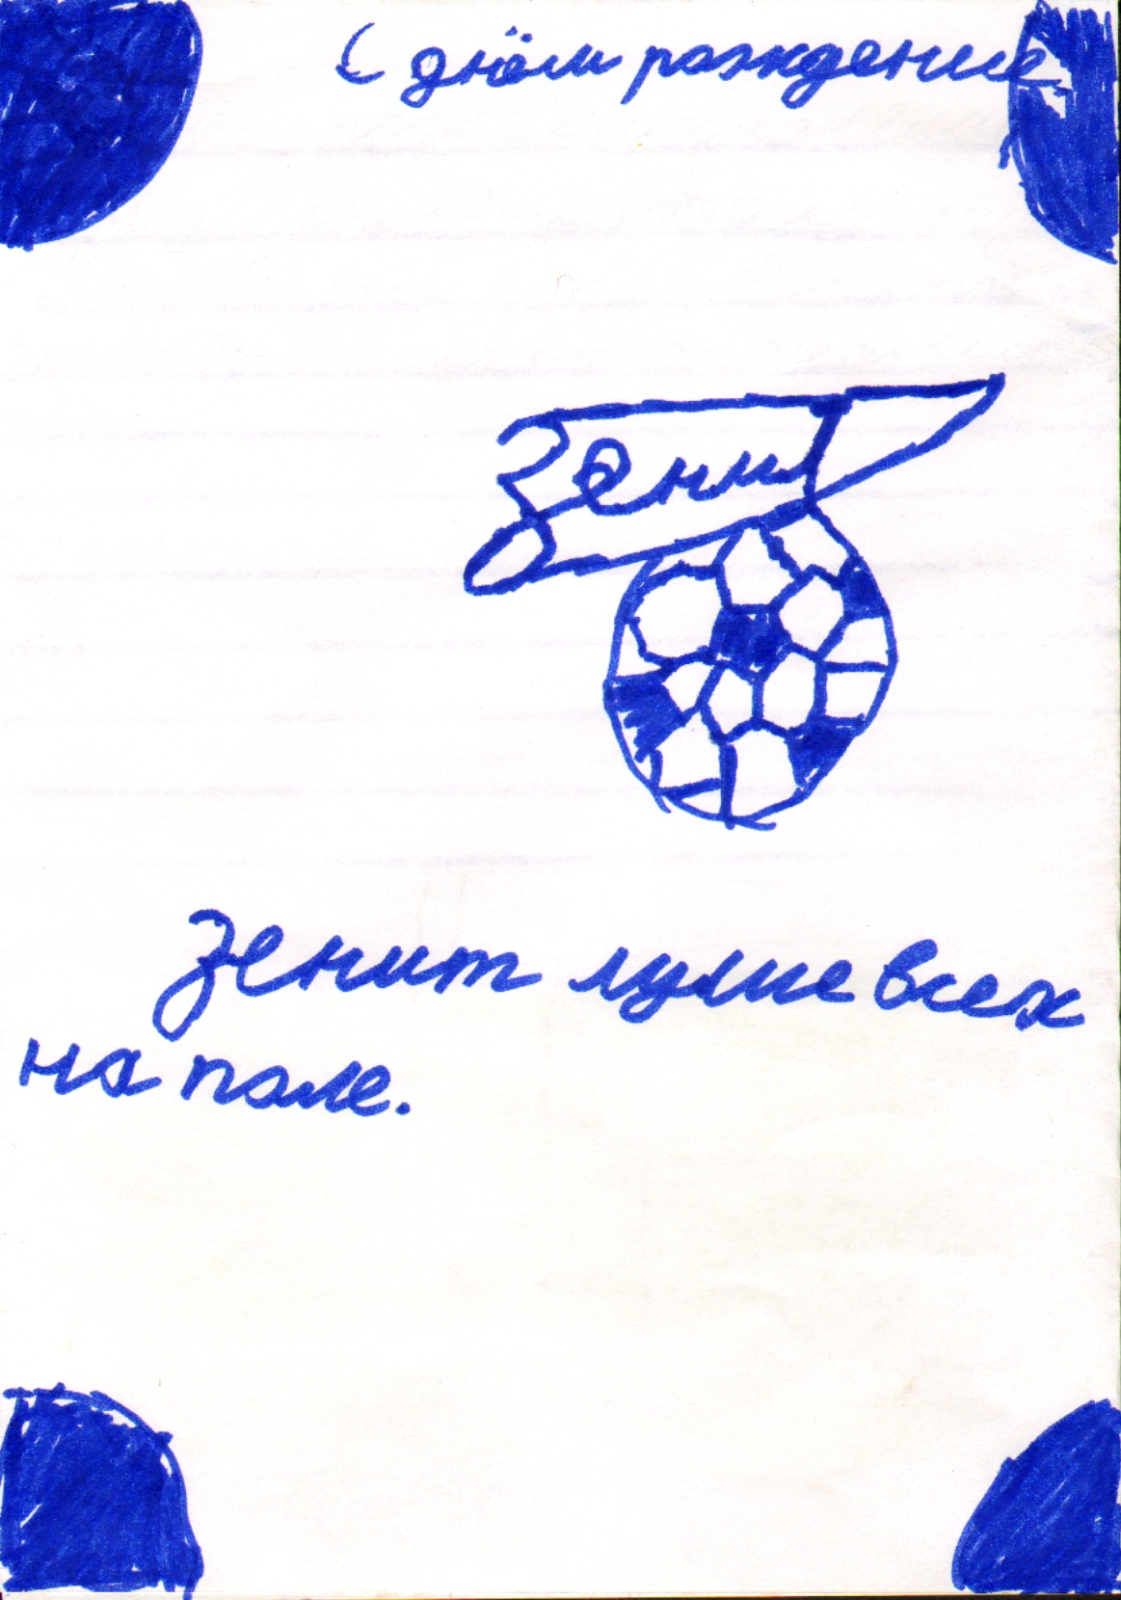 С днём рождение
Зенит
Зенит лучше всех
на поле.